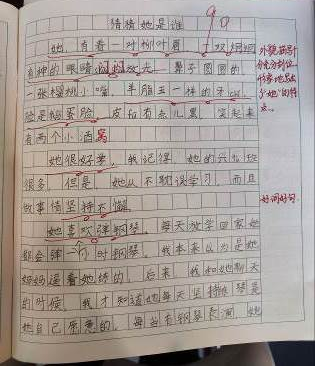 猜猜她是谁
90
她有着一对柳叶眉，双炯炯
有神的眼睛闪闪放光，鼻子圆圆的
一张樱桃小嘴，羊脂玉一样的牙齿，
脸是鹅蛋脸，皮肤有点儿黑，笑起来
有两个小酒窝
她很好学，我记得，她的兴趣班
很多，但是，她从不耽误学习，而且
做事情坚持不懈
她喜欢弹钢琴，每天放学回家她
都会弹一个小时钢琴，我本来以为是她
妈妈逼着她练的，后来，我和她聊天
的时候，我才知道她每天坚持练琴是
她自己愿意的，每当有钢琴表演，她
外貌
好词好句